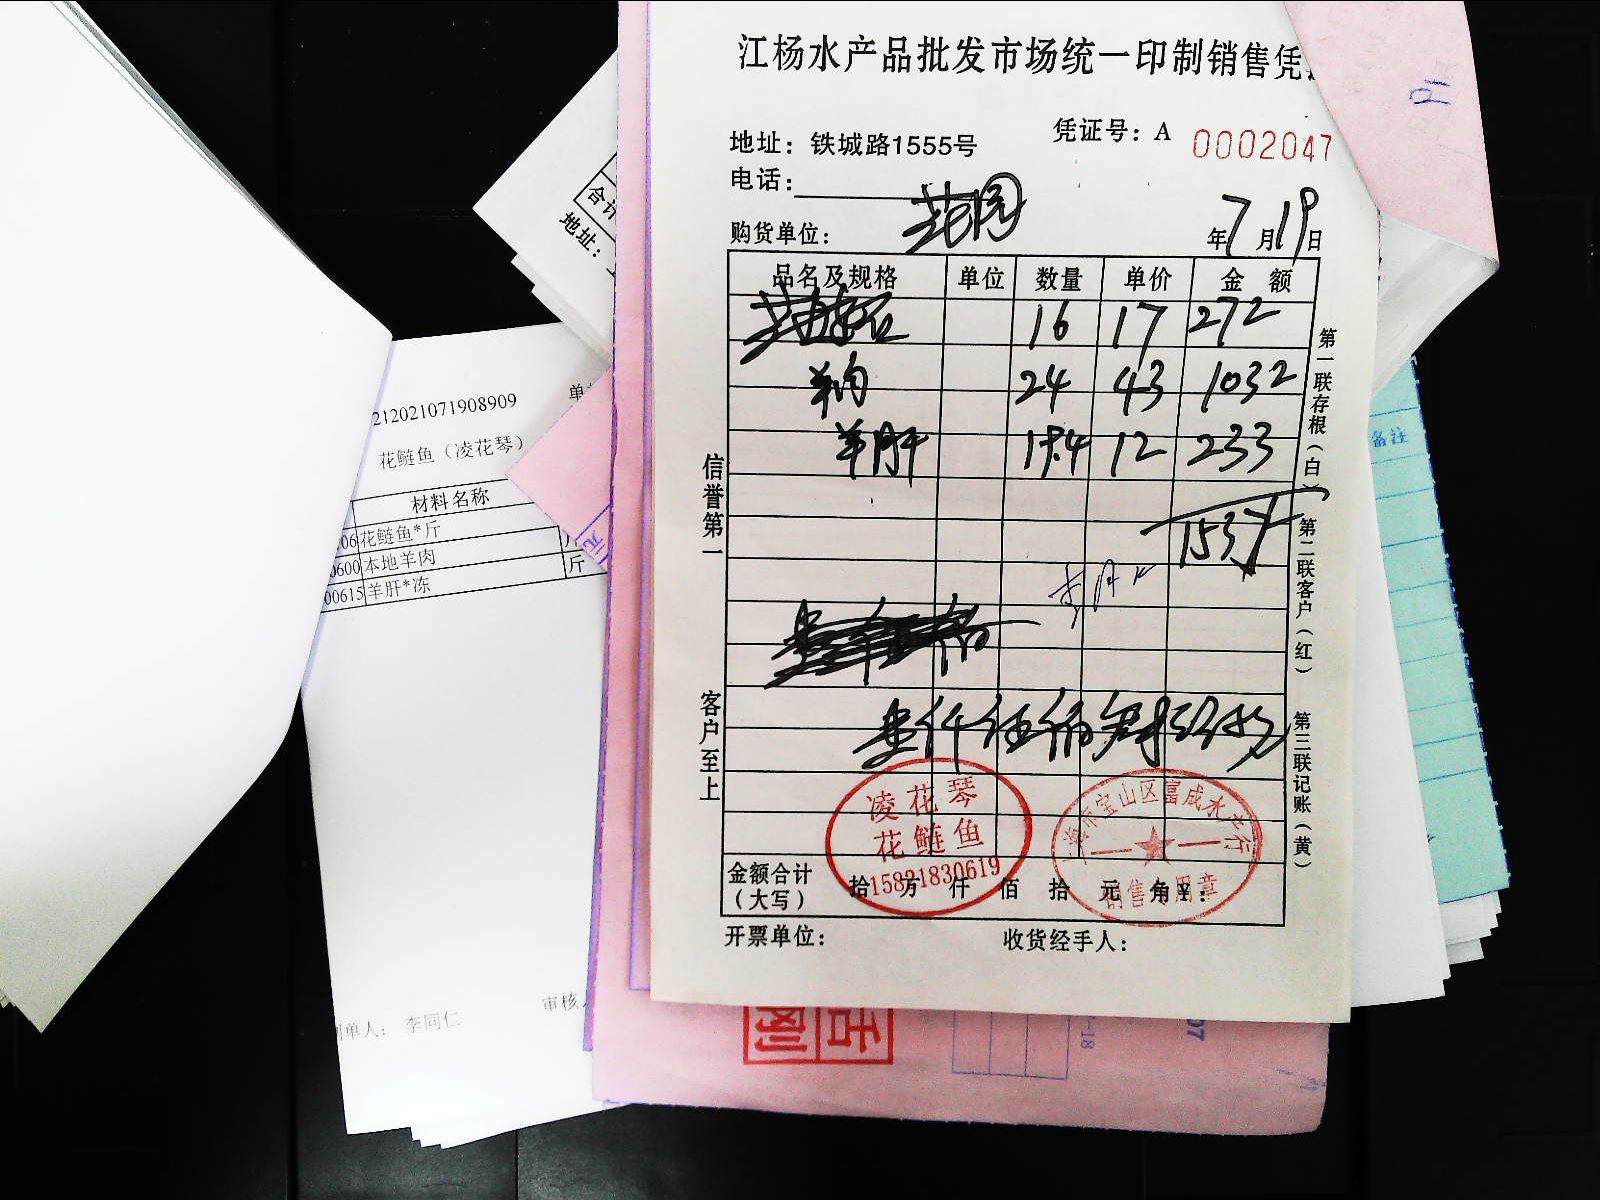 江杨水产品批发市场统一印制销售凭
地址：铁城路1555号
凭证号：A 0002047
电话：
购货单位：
年7月19日
品名及规格 单位 数量 单价 金额
16 17 272
羊肉 24 43 1032
羊肝 19.4 12 233
1537
信誉第一
客户至上
第一联存根（白）
第二联客户（红）
第三联记账（黄）
凌花琴
花鲢鱼
15821830619
上海市宝山区富成水产行
销售专用章
金额合计
（大写）
拾 万 仟 佰 拾 元 角 ¥：
开票单位：
收货经手人：
合计
地址：
212021071908909
单
花鲢鱼（凌花琴）
材料名称
06 花鲢鱼*斤
0600 本地羊肉
斤
00615 羊肝*冻
制单人： 李同仁
审核
备注
元
07
-18